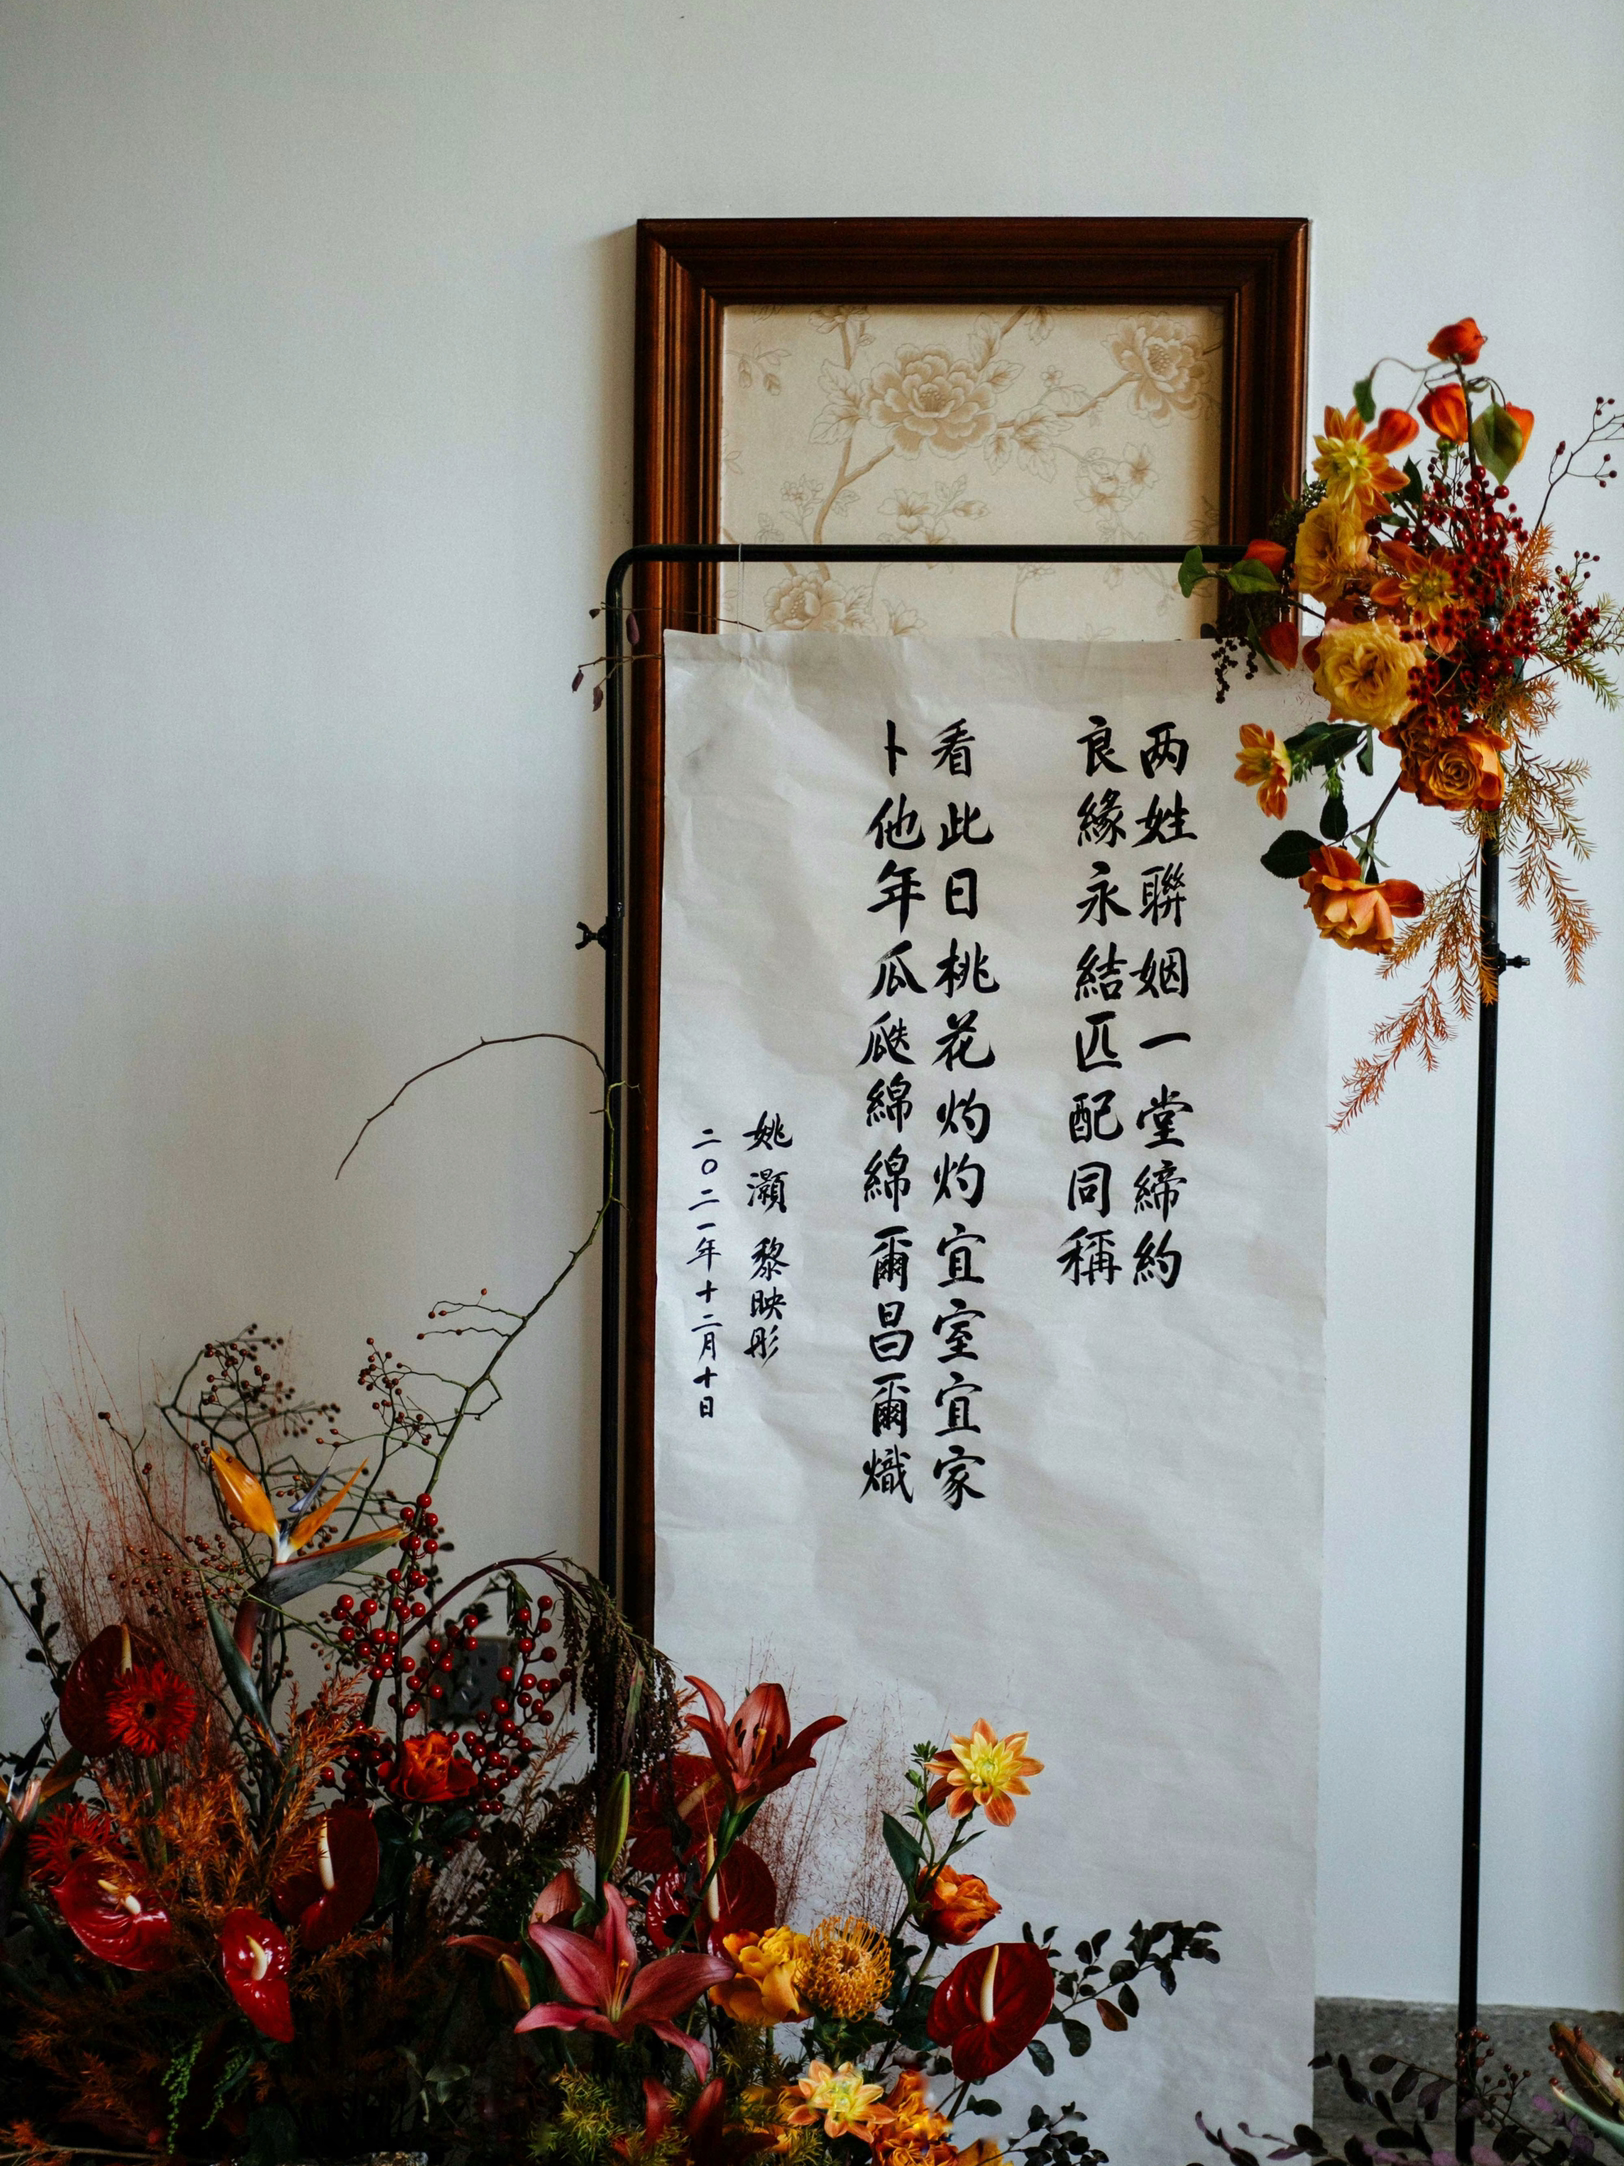 两姓聯姻一堂締約
良緣永結匹配同稱
看此日桃花灼灼宜室宜家
卜他年瓜瓞綿綿爾昌爾熾
姚灝 黎映彤
二〇二一年十二月十日